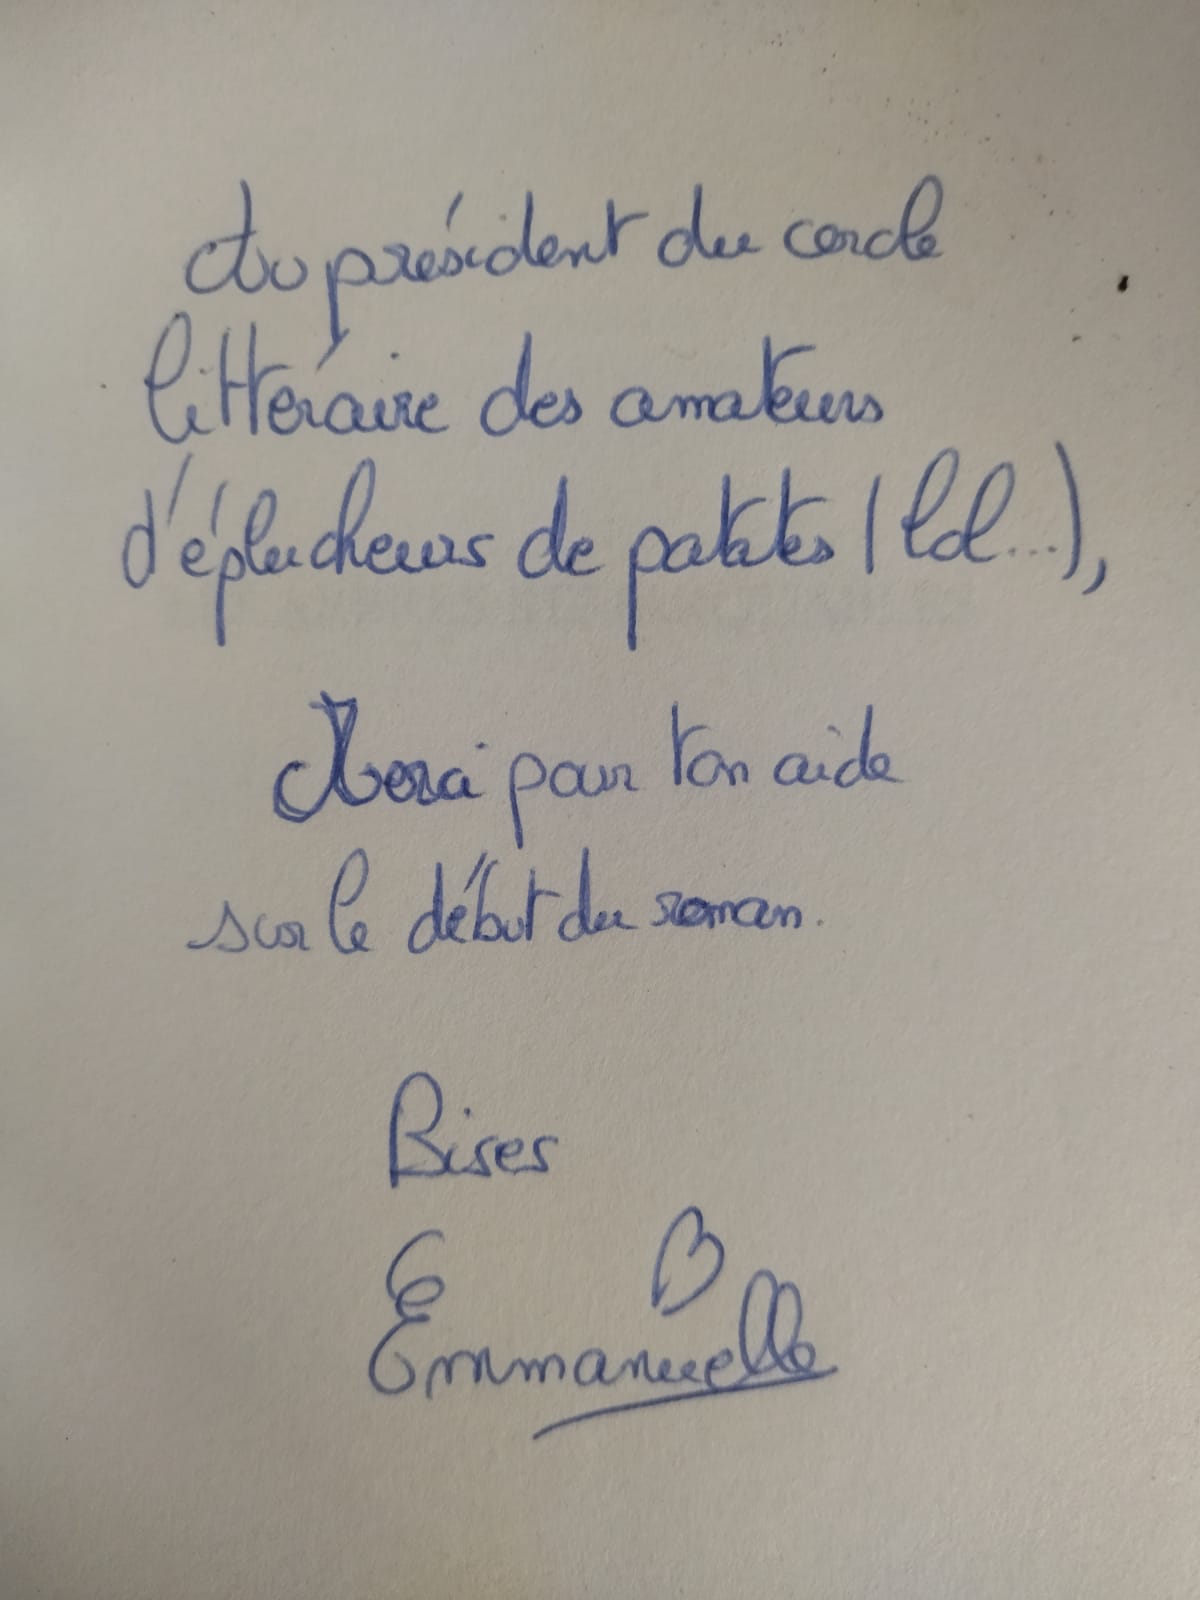 Au président du cercle
littéraire des amateurs
d'éplucheurs de patates (lol...),
Merci pour ton aide
sur le début du roman.
Bises
Emmanuelle